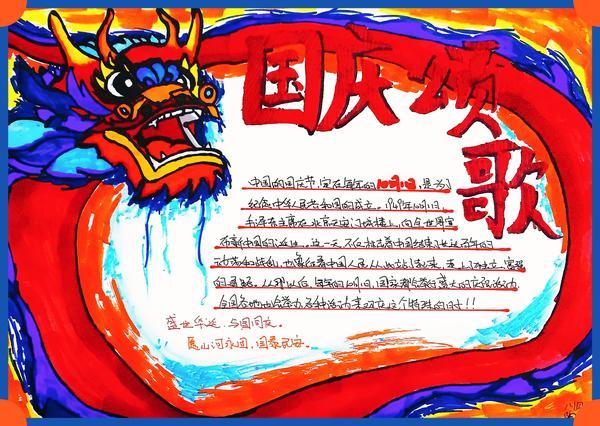 国庆颂歌
中国的国庆节,定在每年的10月1日,是为了
纪念中华人民共和国的成立。1949年10月1日,
毛泽东主席在北京天安门城楼上,向全世界宣
布新中国的诞生。这一天,不仅标志着中国结束了长达百年的
动荡和战乱,也象征着中国人民从此站了起来,走上了独立、富强
的道路。从那以后,每年的10月1日,国家都会举行盛大的庆祝活动
全国各地也会举办各种活动来欢庆这个特殊的日子!!
盛世华诞,与国同庆。
愿山河永固,国泰民安。